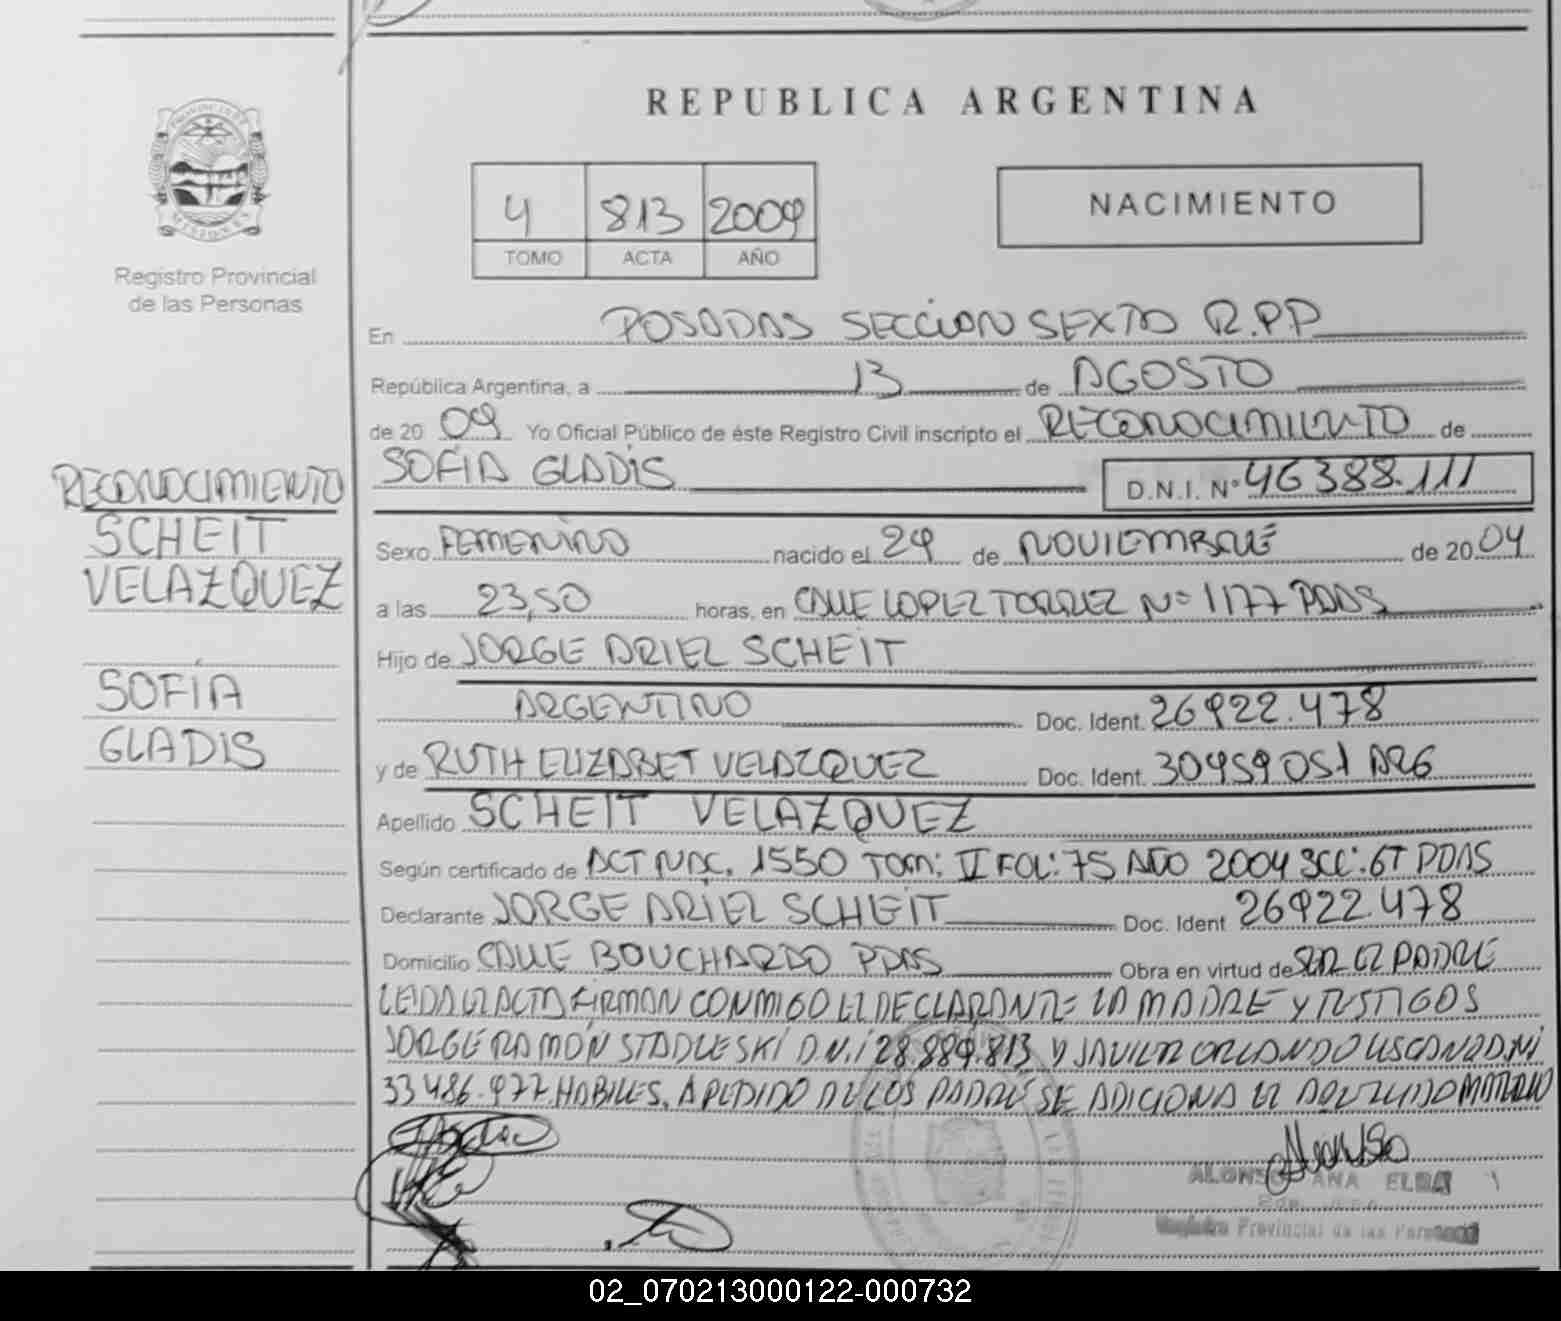 REPUBLICA ARGENTINA
PROVINCIA DE
MISIONES
Registro Provincial
de las Personas
4 813 2009
TOMO ACTA AÑO
NACIMIENTO
En POSADAS SECCION SEXTO R.P.P
República Argentina, a 13 de AGOSTO
de 20 09 Yo Oficial Público de éste Registro Civil inscripto el RECONOCIMIENTO de
SOFÍA GLADIS D.N.I. N° 46388.111
RECONOCIMIENTO
SCHEIT
VELAZQUEZ
SOFÍA
GLADIS
Sexo FEMENINO nacido el 29 de NOVIEMBRE de 20 04
a las 23,50 horas, en CALLE LOPEZ TORREZ Nº 1177 PDAS
Hijo de JORGE ARIEL SCHEIT
ARGENTINO Doc. Ident. 26922.478
y de RUTH ELIZABET VELAZQUEZ Doc. Ident. 30459051 ARG
Apellido SCHEIT VELAZQUEZ
Según certificado de ACT NAC. 1550 TOM: II FOL: 75 AÑO 2004 SCC: 6T PDAS
Declarante JORGE ARIEL SCHEIT Doc. Ident 26922.478
Domicilio CALLE BOUCHARDO PDAS Obra en virtud de SER EL PADRE
LEIDA EL ACTA FIRMAN CONMIGO EL DECLARANTE LA MADRE Y TESTIGOS
JORGE RAMÓN STADLESKI D.N.i 28.889.813 Y JAVIER ORLANDO D.Ni
33486.977 HABILES. A PEDIDO DE LOS PADRE SE ADICIONA EL APELLIDO MATERNO
ALONSO ANA ELBA
Registro Provincial de las Personas
02_070213000122-000732